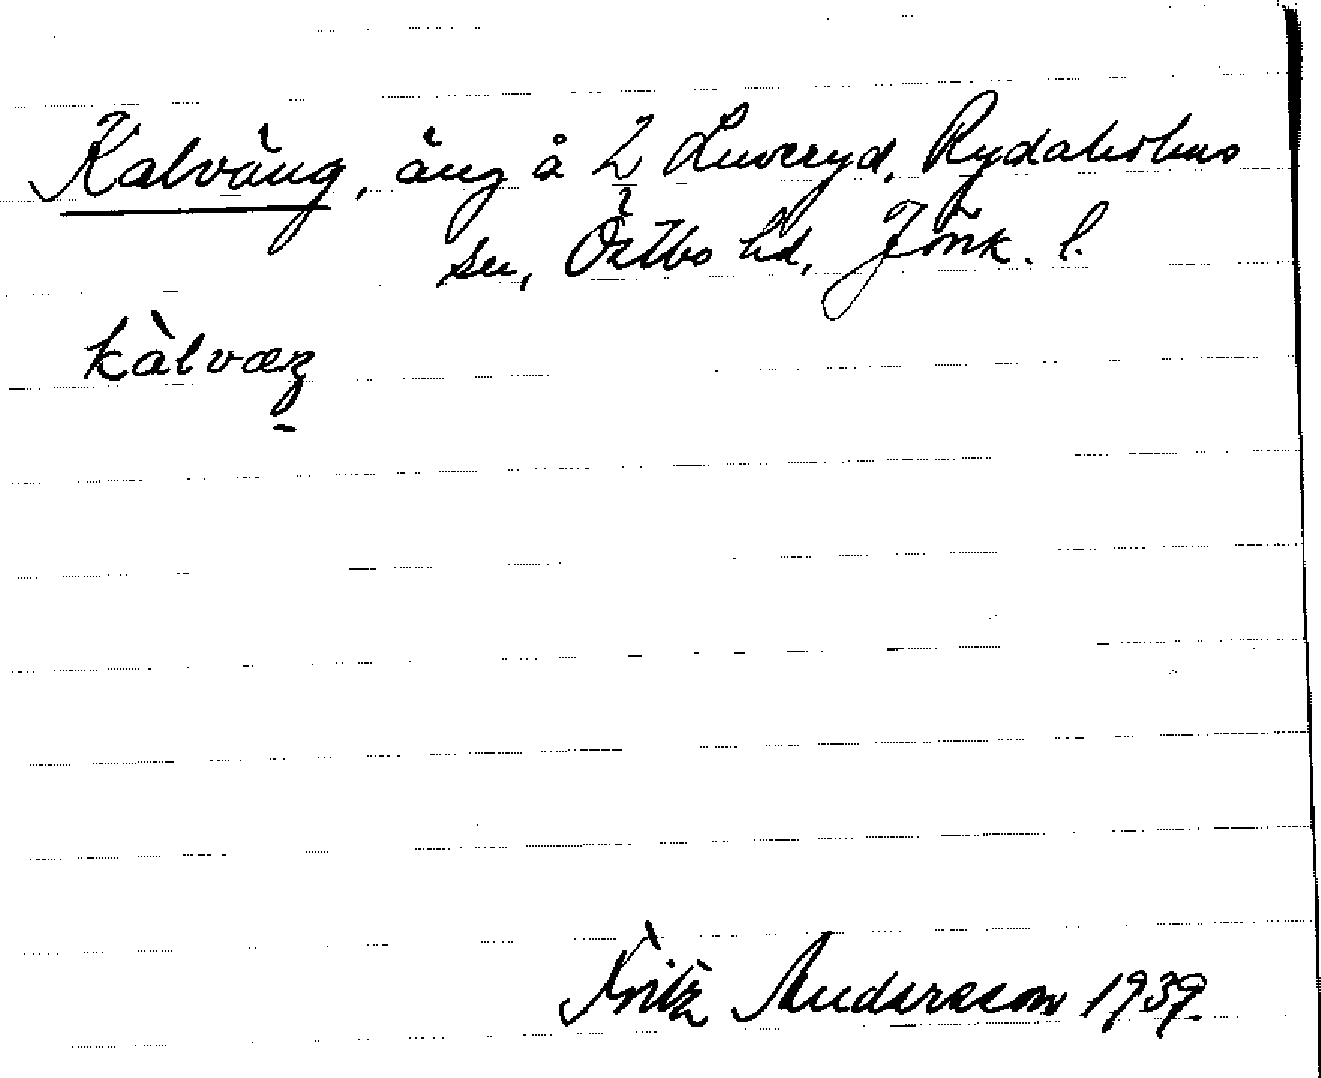 Kalväng, äng å 2 Luveryd, Rydaholms
sn, Östbo hd, Jönk. l.
kàlvæŋ
Fritz Andersson 1939.